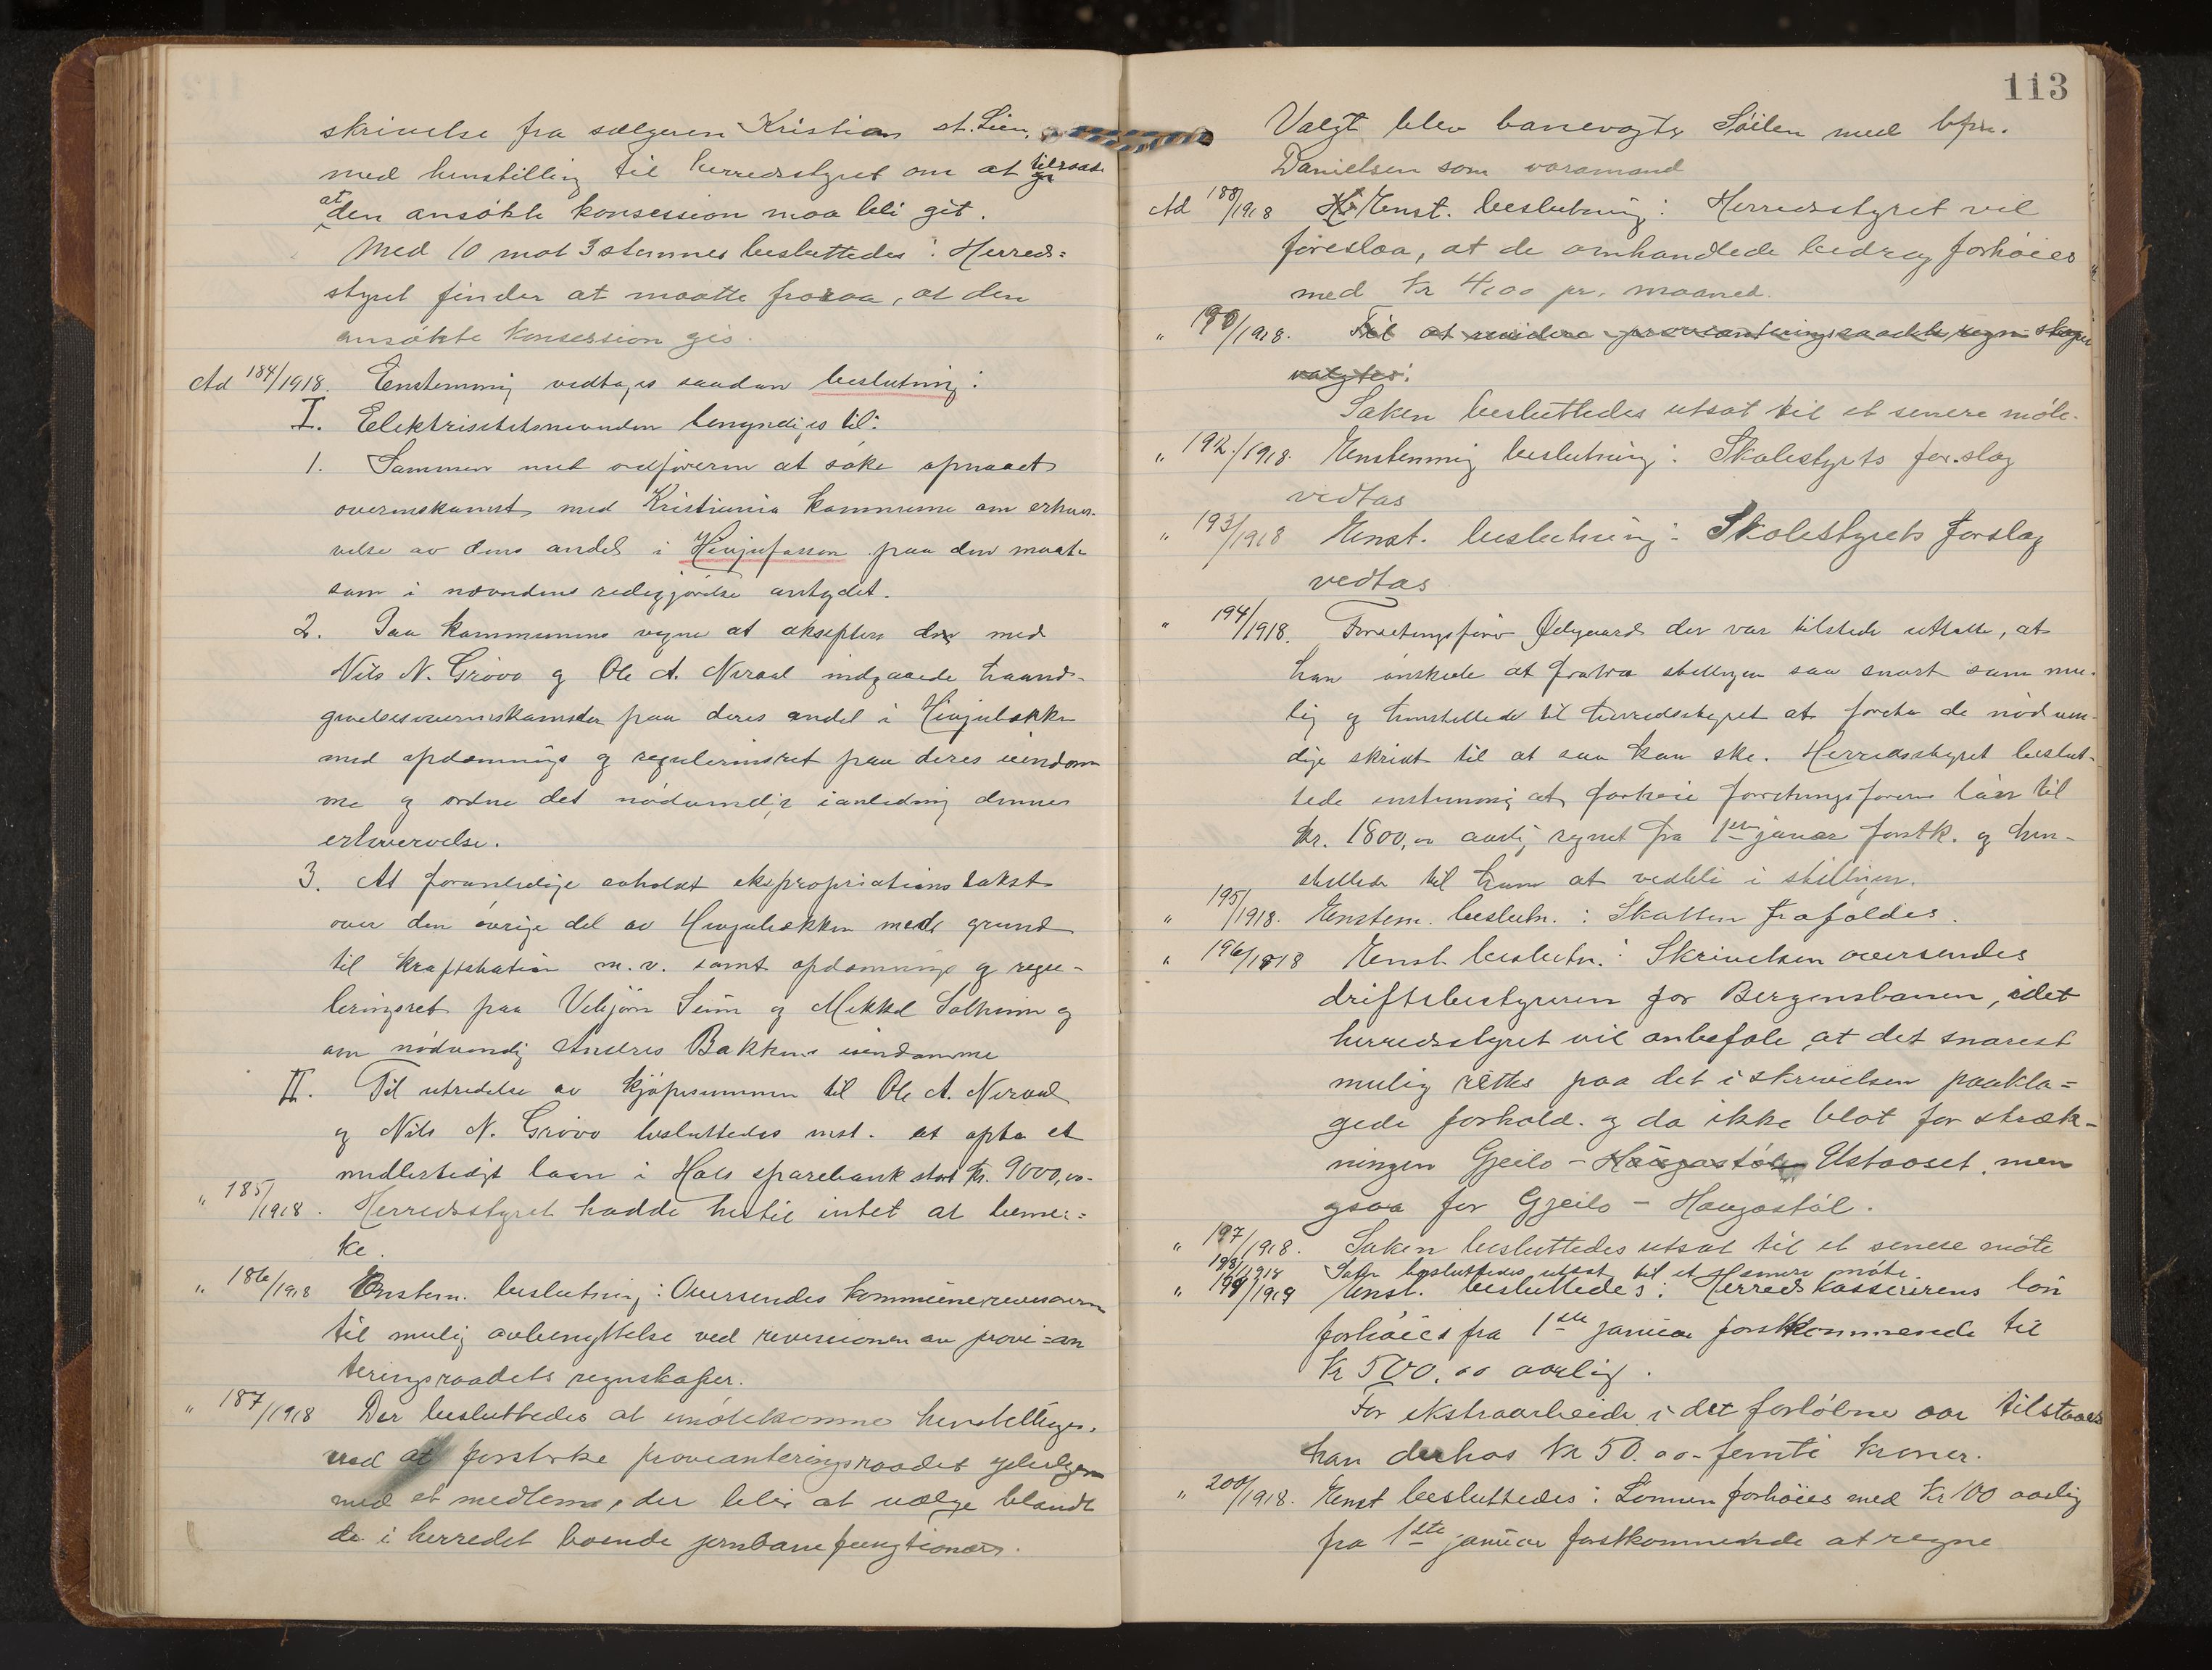 skrivelse fra sælgeren Kristian st. Lien,
med henstilling til herredsstyret om at tilraade
at den ansökte konsession maa bli git.
Med 10 mot 3 stemmer besluttedes: Herreds=
styret finder at maatte fraraa, at den
ansökte konsession gis.
Ad 184/1918. Enstemmig vedtages saadan beslutning:
I. Elektrisitetsnevnden bemyndiges til:
1. Sammen med ordföreren at söke opnaaet
overenskomst med Kristiania kommune om erhver-
velse av dens andel i Hevjufossen paa den maate
som i nævndens redegjörelse antydet.
2. Paa kommunens vegne at akseptere de med
Nils N. Grövo og Ole A. Neraal indgaaede haand-
givelsesoverenskomster paa deres andel i Hevjubækken
med opdæmnings og reguleringsret paa deres eiendom
me og ordne det nödvendige i anledning dennes
erhvervelse.
3. At foranledige avholdt ekspropriationstakst
over den övrige del av Hevjubækken med grund
til kraftstation m.v. samt opdæmnings og regu-
leringsret paa Vebjörn Seim og Mikkel Solheim og
om nödvendig Anders Bakkens eiendomme
II. Til utredelse av kjöpesummen til Ole A. Neraal
og Nils N. Grövo besluttedes enst. at opta et
midlertidigt laan i Hols sparebank stort kr. 9000,00-
" 185/1918. Herredsstyret hadde hertil intet at bemer=
ke.
" 186/1918 Enstem. beslutning: Oversendes kommunerevisoren
til mulig avbenyttelse ved revisionen av provi=an
teringsraadets regnskaper.
" 187/1918 Der besluttedes at imötekomme henstillingen,
ved at forsterke provianteringsraadet yderligere
med et medlem, der blir at vælge blandt
de i herredet boende jernbanefungtionær.
113
Valgt blev banevogter Söilen med bfm.
Danielsen som varamand
Ad 188/1918 Enst. beslutning: Herredsstyret vil
föreslaa, at de omhandlede bedrag forhöies
med kr 4,00 pr. maaned.
" 190/1918. Til at revidere provianteringsraadets regnskaper
valgtes:
Saken besluttedes utsat til et senere möte.
" 192/1918. Enstemmig beslutning: Skolestyrets forslag
vedtas
" 193/1918 Enst. beslutning: Skolestyrets forslag
vedtas
" 194/1918. Forretningsförer Ødegaard der var tilstede uttalte, at
han önskede at fratræ stillingen saa snart som mu-
lig og henstillede til herredsstyret at foreta de nödven-
dige skridt til at saa kan ske. Herredsstyret beslut-
tede enstemmig at forhöie forretningsförerens lön til
kr. 1800,00 aarlig regnet fra 1ste januar forstk. og hen-
stillede til ham at vedbli i stillingen.
" 195/1918. Enstem. beslutn.: Skatten frafaldes.
" 196/1918 Enst. beslutn.: Skrivelsen oversendes
driftsbestyreren for Bergensbanen, idet
herredsstyret vil anbefale at det snarest
mulig rettes paa det i skrivelsen paakla=
gede forhold. og da ikke blot for stræk-
ningen Gjeilo - Haugastöl Ustaoset, men
ogsaa for Gjeilo - Haugastöl.
" 197/1918. Saken besluttedes utsat til et senere möte
198/1918 Saken besluttedes utsat til et senere möte
" 199/1918 Enst. besluttedes: Herredskassererens lön
forhöies fra 1ste januar forstkommende til
kr 500,00 aarlig.
For ekstraarbeide i det forlöbne aar tilstaaes
han derhos kr 50.00 - femti kroner.
" 200/1918. Enst besluttedes: Lönnen forhöies med kr 100 aarlig
fra 1ste januar forstkommende at regne